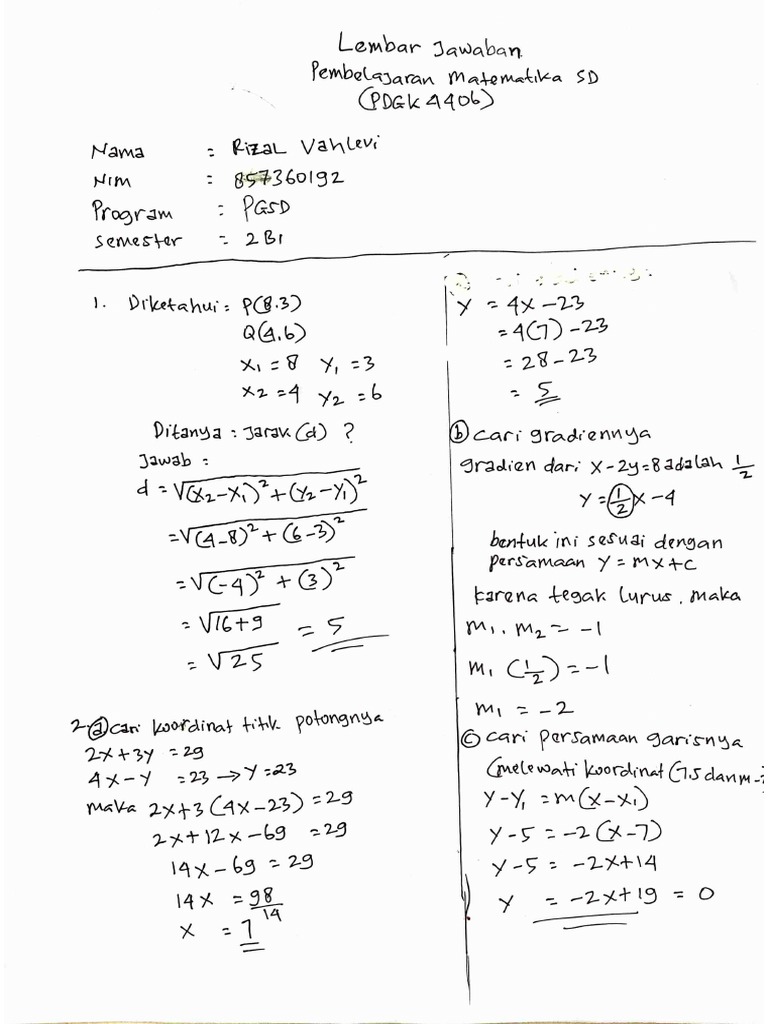 Lembar Jawaban
Pembelajaran Matematika SD
(PDGK 4406)
Nama : Rizal Vahlevi
Nim : 857360192
Program : PGSD
Semester : 2B1
1. Diketahui : P(8.3)
Q(4,6)
x₁ = 8 y₁ = 3
x₂ = 4 y₂ = 6
Ditanya : Jarak (d) ?
Jawab :
d = √(x₂-x₁)² + (y₂-y₁)²
= √(4-8)² + (6-3)²
= √(-4)² + (3)²
= √16+9 = 5
= √25
2. ⓐ cari koordinat titik potongnya
2x+3y = 29
4x-y = 23 → y=23
maka 2x+3(4x-23) = 29
2x+12x-69 = 29
14x-69 = 29
14x = 98
14
x = 7
y = 4x-23
= 4(7)-23
= 28-23
= 5
ⓑ cari gradiennya
gradien dari x-2y=8 adalah 1/2
y = 1/2 x-4
bentuk ini sesuai dengan
persamaan y = mx+c
karena tegak lurus, maka
m₁ . m₂ = -1
m₁ (1/2) = -1
m₁ = -2
ⓒ cari persamaan garisnya
(melewati koordinat (7.5 dan m -
y-y₁ = m(x-x₁)
y-5 = -2(x-7)
y-5 = -2x+14
y = -2x+19 = 0